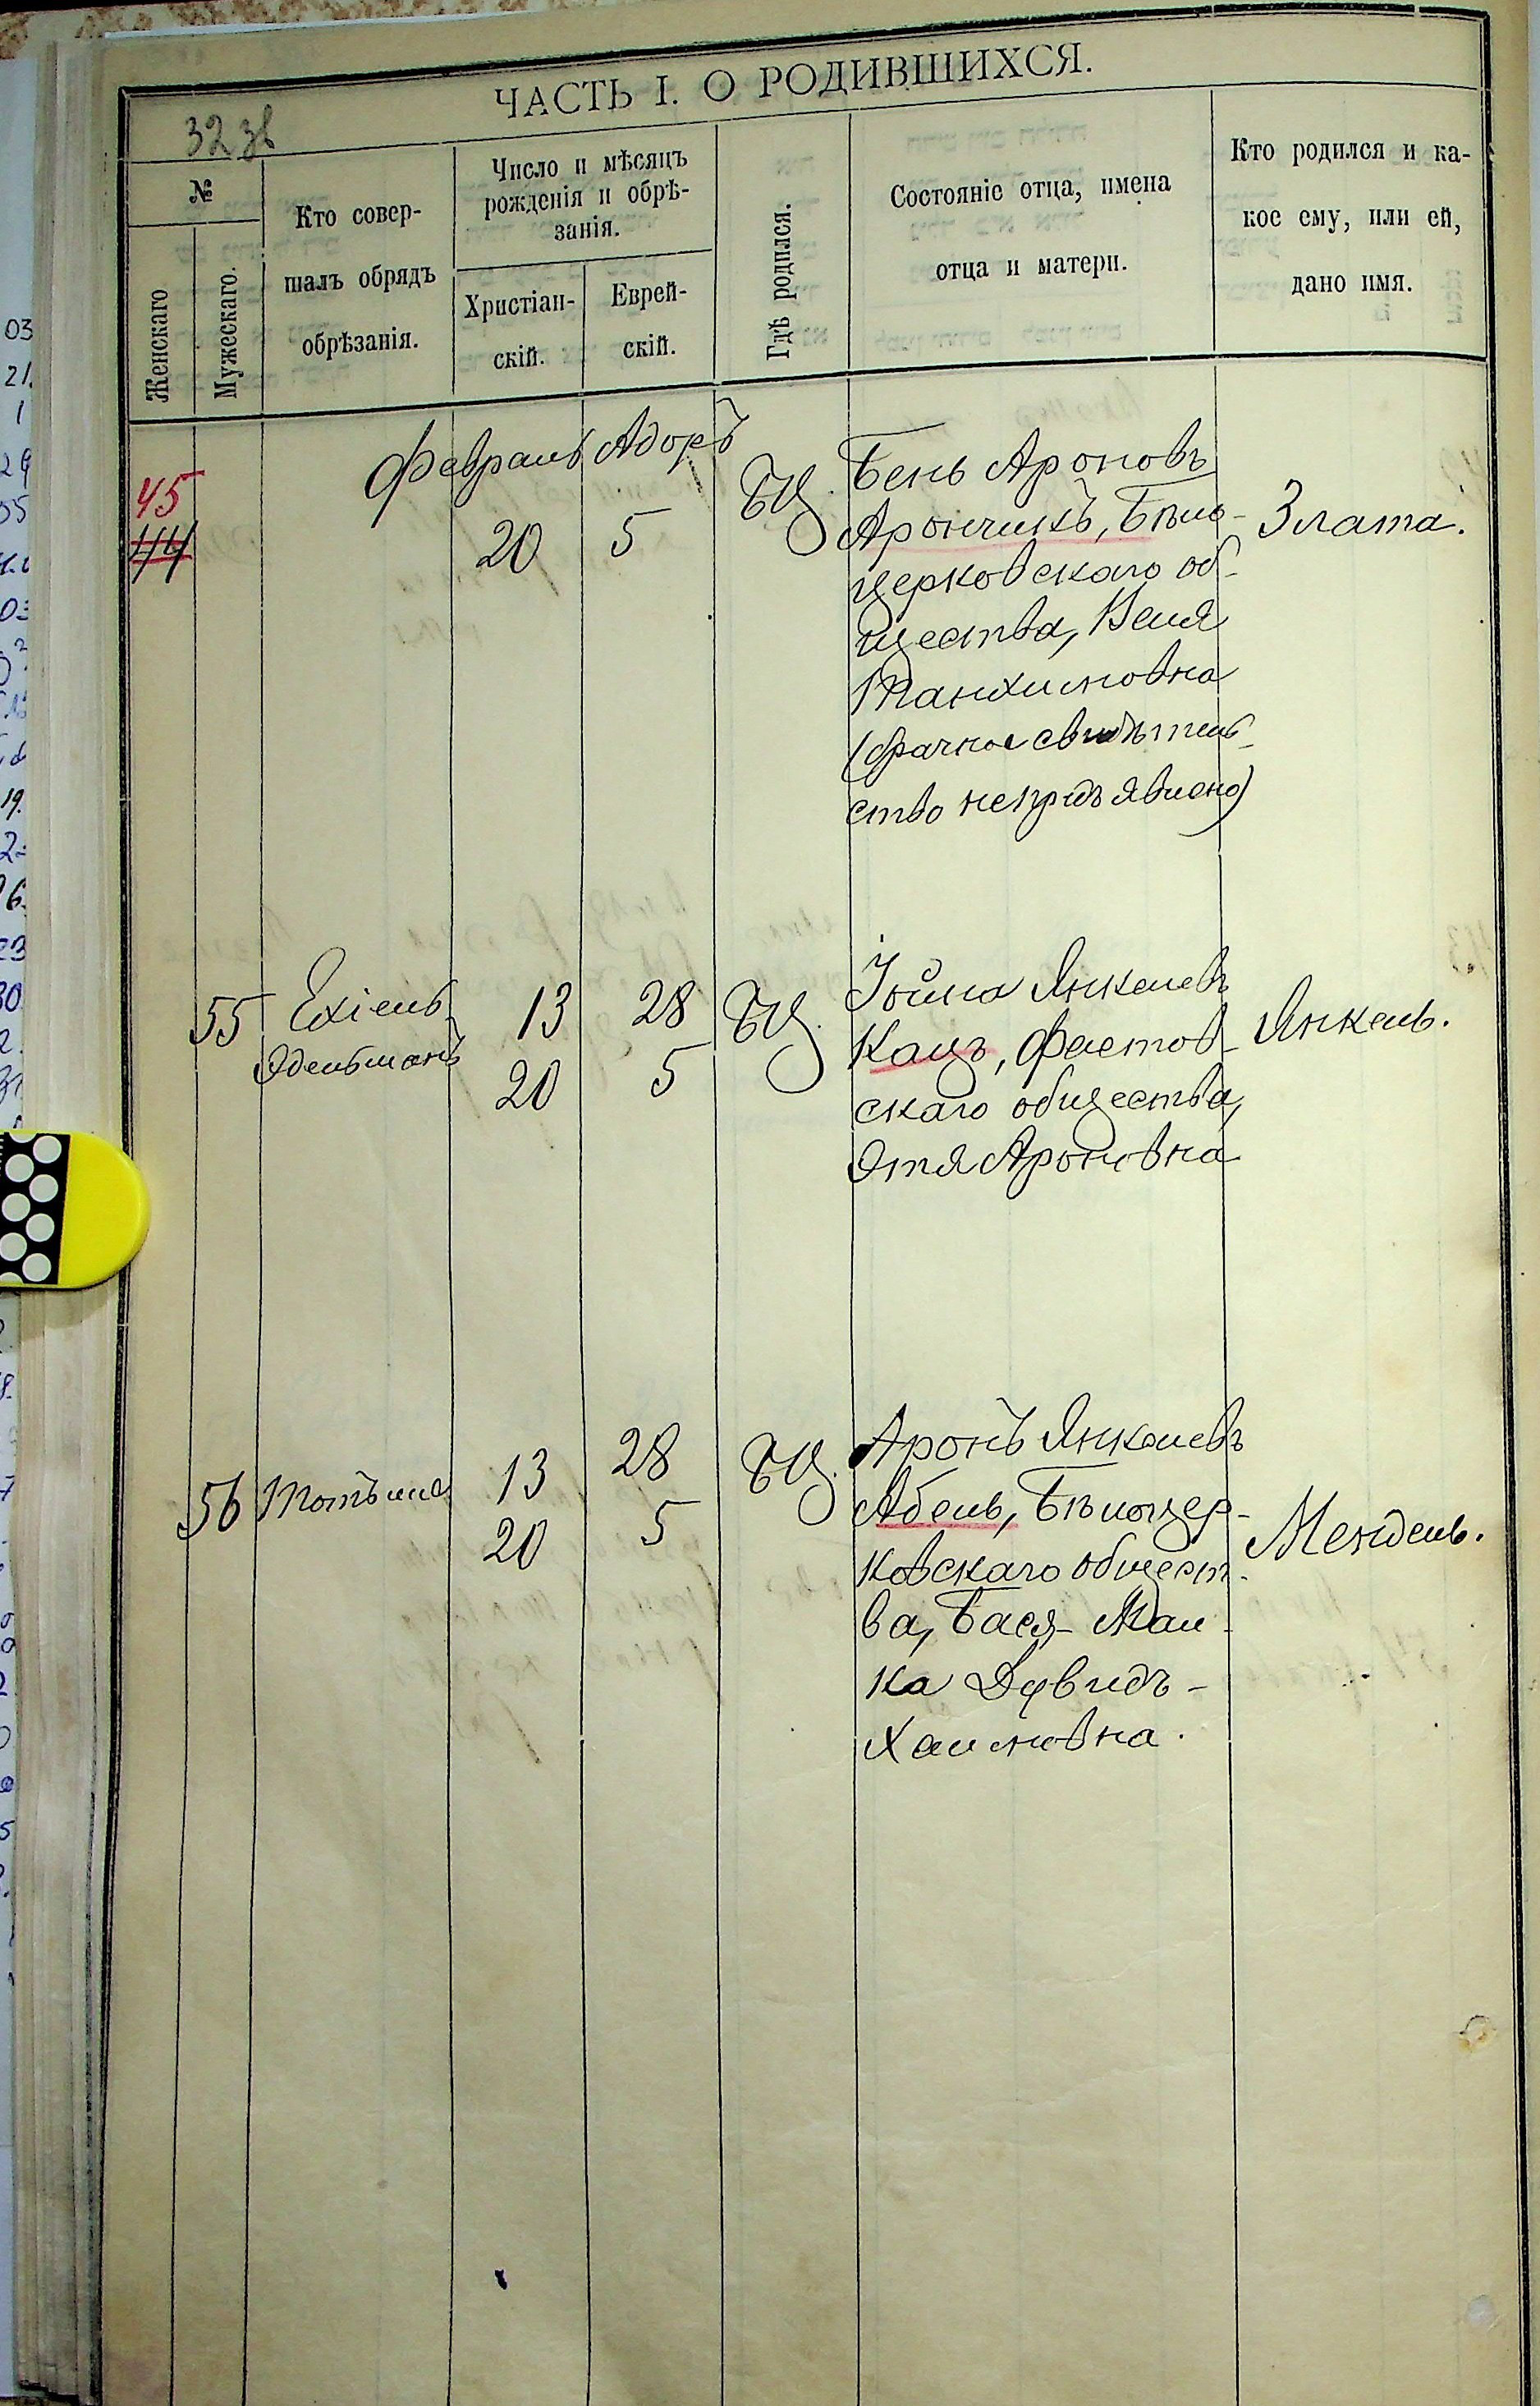 ЧАСТЬ I. О РОДИВШИХСЯ.
32 зв
№
Женскаго
Мужескаго.
Кто совер-
шалъ обрядъ
обрѣзанія.
Число и мѣсяцъ
рожденія и обрѣ-
занія.
Христіан-
скій.
Еврей-
скій.
Гдѣ родился.
Состояніе отца, имена
отца и матери.
Кто родился и ка-
кое ему, или ей,
дано имя.
Февраль Адоръ
45
44
20
5
БЦ.
Бень Ароновъ
Арончикъ, Бѣло-
церковскаго об-
щества, Веля
Танхимовна
(брачное свидѣтель-
ство непредъявлено)
Злата.
55
Ехіель
Эдельманъ
13
28
20
5
БЦ.
Іойна Янкелевъ
Кацъ, Фастов-
скаго общества,
Этя Ароновна
Янкель.
56
Тотъ же
13
28
20
5
БЦ.
Аронъ Янкелевъ
Абель, Бѣлоцер-
ковскаго общест-
ва, Бася-Мал-
ка Дувидъ-
Хаимовна.
Мендель.